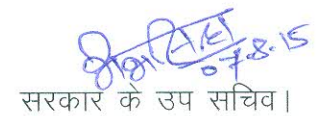 07.8.15
सरकार के उप सचिव।